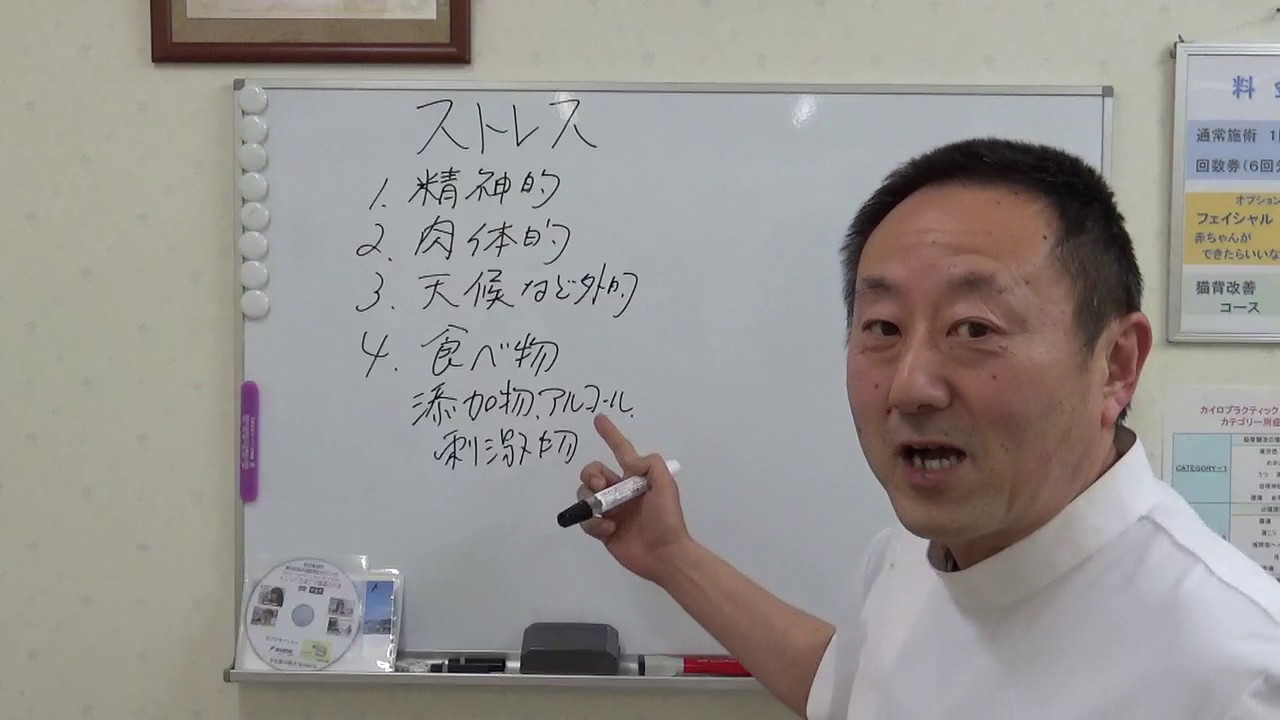 ストレス
1. 精神的
2. 肉体的
3. 天候など外的
4. 食べ物
添加物、アルコール、
刺激物
料 金
通常施術 1
回数券(6回分
オプション
フェイシャル
赤ちゃんが
できたらいいな
猫背改善
コース
カイロプラクティック
カテゴリー別症
CATEGORY-1